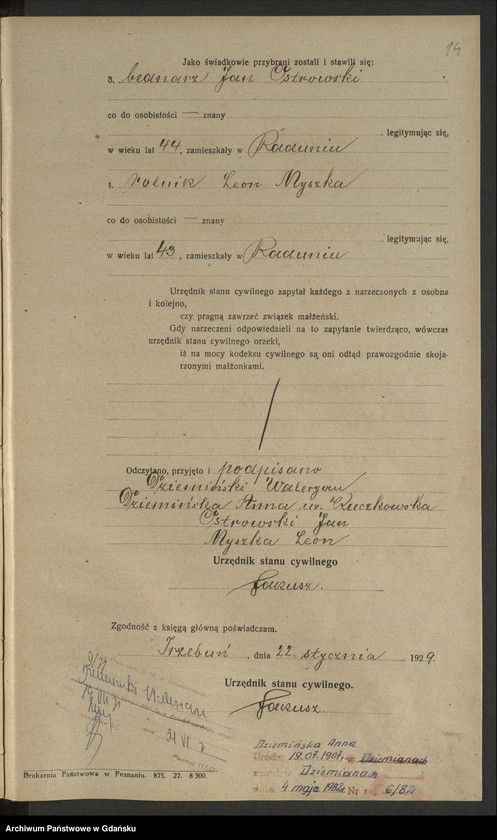 14
Jako świadkowie przybrani zostali i stawili się:
3. bednarz Jan Ostrowski
co do osobistości — znany
legitymując się,
w wieku lat 44, zamieszkały w Raduniu
1. rolnik Leon Myszka
co do osobistości — znany
legitymując się,
w wieku lat 43, zamieszkały w Raduniu
Urzędnik stanu cywilnego zapytał każdego z narzeczonych z osobna
i kolejno,
czy pragną zawrzeć związek małżeński.
Gdy narzeczeni odpowiedzieli na to zapytanie twierdząco, wówczas
urzędnik stanu cywilnego orzekł,
iż na mocy kodeksu cywilnego są oni odtąd prawozgodnie skoja-
rzonymi małżonkami.
Odczytano, przyjęto i podpisano
Dziemiński Waleryan
Dziemińska Anna ur. Kuczkowska
Ostrowski Jan
Myszka Leon
Urzędnik stanu cywilnego
Zgodność z księgą główną poświadczam.
Trzebuń, dnia 22 stycznia 1929.
Urzędnik stanu cywilnego.
Dziemińska Anna
19.07.1901
Dziemianach
4 maja 1982 Nr 6/82
Drukarnia Państwowa w Poznaniu. 875. 27. 8 300.
Archiwum Państwowe w Gdańsku